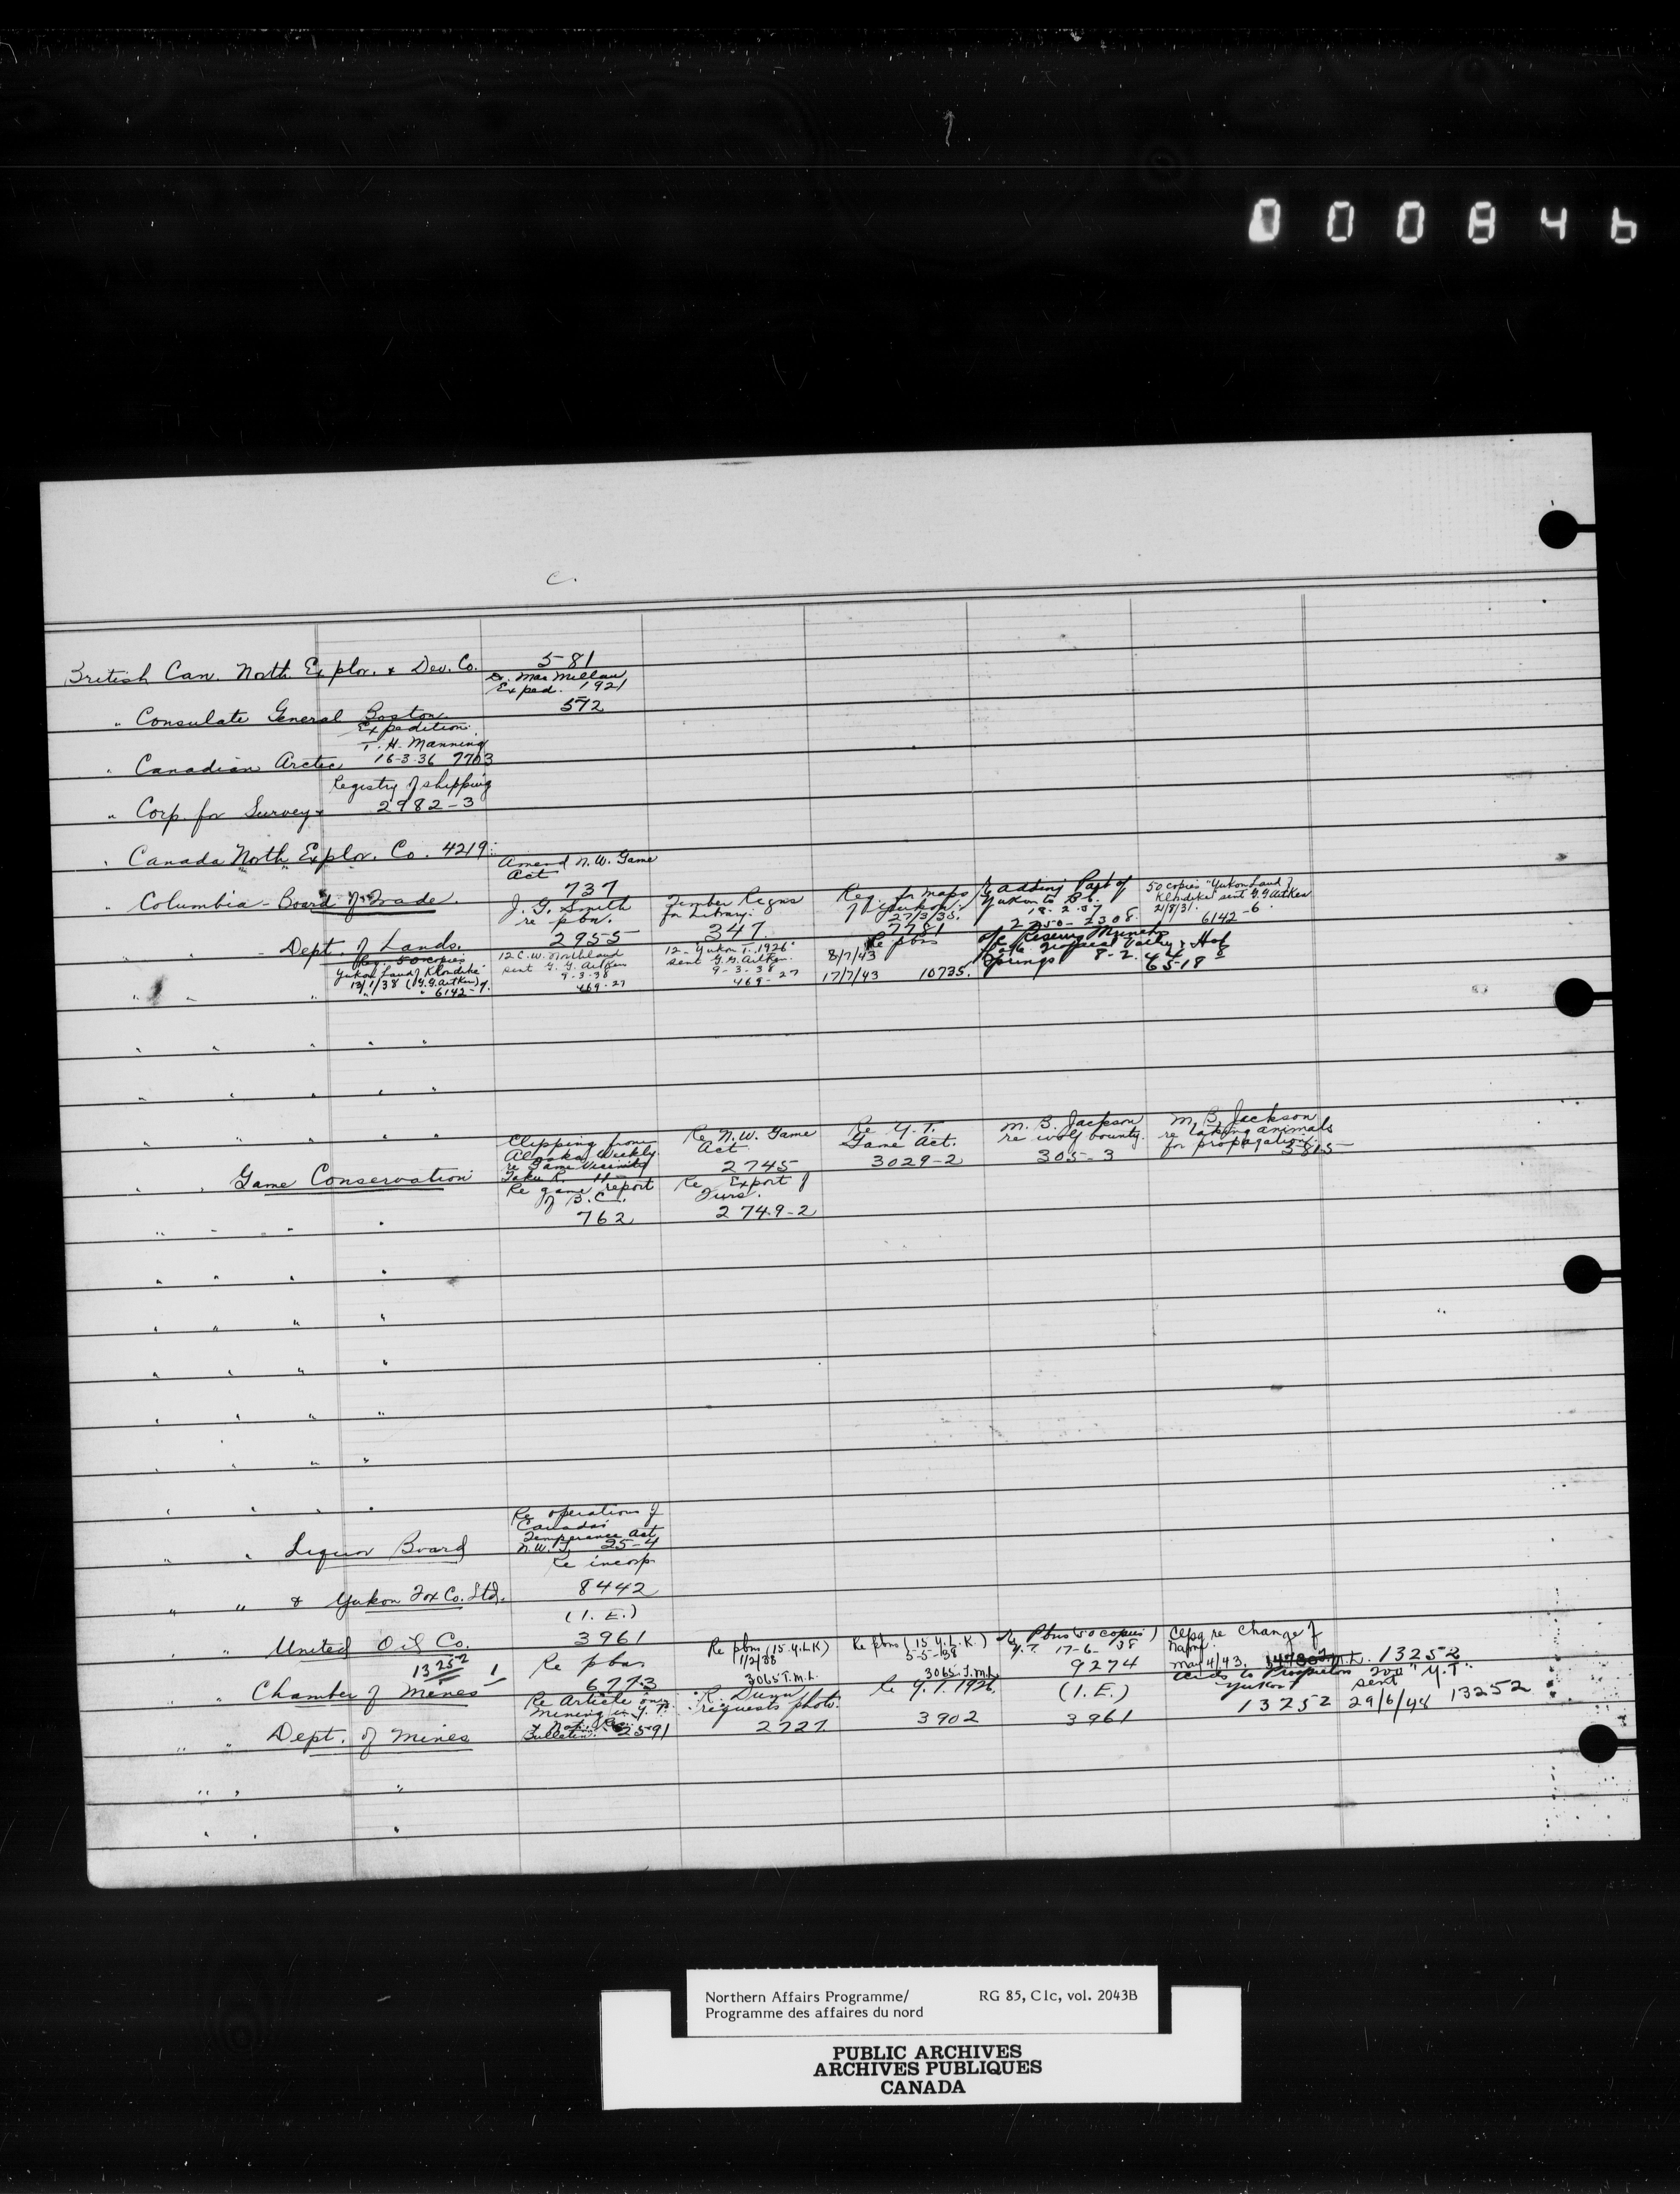 000846
C.
British Can. North Explor. & Dev. Co. 581
Dr. MacMillan
Exped. 1921
" Consulate General Boston 572
Expedition
T. H. Manning
" Canadian Arctic 16-3-36 7703
Registry of shipping
" Corp. for Survey 2982-3
" Canada North Explor. Co. 4219
Amend N.W. Game
Act
" Columbia - Board of Trade. 737
J. G. Smith
re pbn.
Dept. of Lands. 2955
Timber Regns
for Library.
347
Req. for maps
of Yukon.
27/3/35.
7781
Re adding Part of
Yukon to B.C.
18-2-37
2250-2308.
50 copies "Yukon Land of
Klondike" sent G. G. Aitken
21/8/31.
6142-6
Req. 50 copies
Yukon Land of Klondike
13/1/38 (G. G. Aitken)
6142-7.
12 C. W. Northland
sent G. G. Aitken
9-3-38
469-27
12 - "Yukon T. 1926"
sent G. G. Aitken.
9-3-38
469-27
Re pbns
8/7/43
17/7/43 10735.
Re Reserving
Tropical Valley & Hot
Springs 8-2-44
6518
Clipping from
Alaska Weekly
re Game Vicinity
Taku R.
" " Game Conservation
Re N.W. Game
Act
2745
Re Y.T.
Game Act.
3029-2
M. B. Jackson
re wolf bounty.
305-3
M. B. Jackson
re taking animals
for propagation
5815
Re game report
of B.C.
762
Re Export of
Furs.
2749-2
Re operation of
Canada
Temperance Act
N.W.T. 25-4
" " Liquor Board
Re incorp.
" " & Yukon Fox Co. Ltd. 8442
(I. E.)
" " United Oil Co. 3961
13252
" " Chamber of Mines
Re pbns
6773
Re pbns (15 Y.L.K)
1/2/38
3065 T.M.L.
Re pbns (15 Y.L.K.)
5-5-38
3065 T.M.L.
Re Pbns (50 copies)
Y.T. 17-6-38
9274
Clpg re Change of
Name
May 4/43. 13252
Aids to Prospectors
Yukon
13252
200 "Y.T."
sent
29/6/44 13252
Re Article on
mining in Y.T.
Bulletin. 2591
" " Dept. of Mines
R. Dunn
requests photo.
2727
Re Y.T. 1926.
3902
(I.E.)
3961
Northern Affairs Programme/ RG 85, C1c, vol. 2043B
Programme des affaires du nord
PUBLIC ARCHIVES
ARCHIVES PUBLIQUES
CANADA